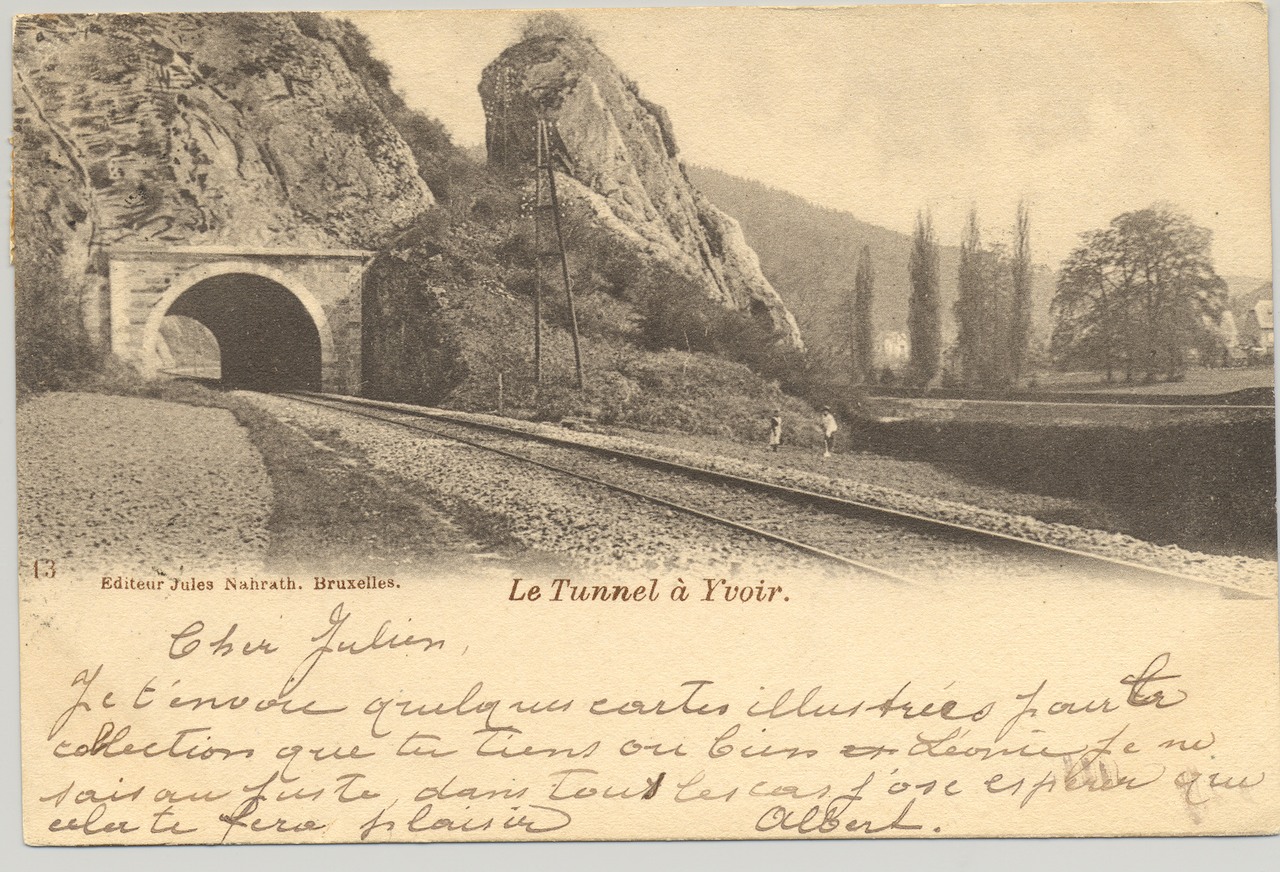 13
Editeur Jules Nahrath. Bruxelles.
Le Tunnel à Yvoir.
Cher Julien,
Je t'envoie quelques cartes illustrées pour ta
collection que tu tiens ou bien Léonie je ne
sais au juste, dans tous les cas j'ose espérer que
cela te fera plaisir Albert.